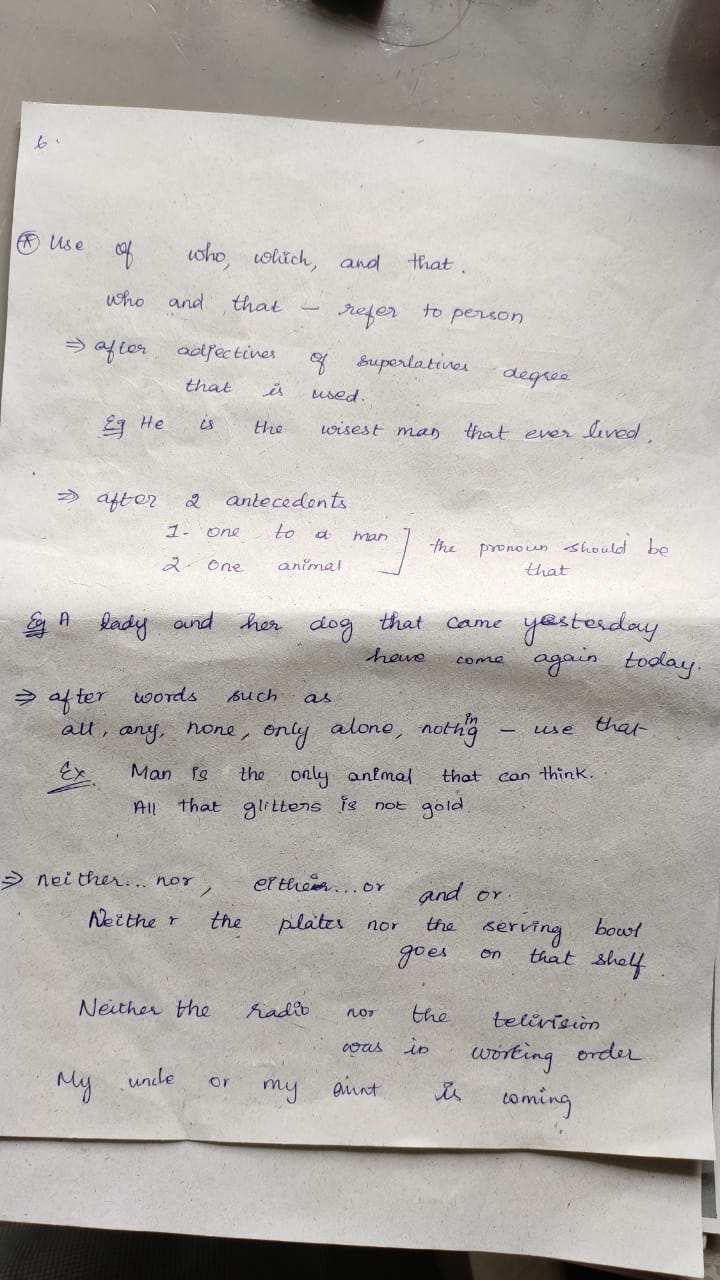 6.
* Use of who, which, and that.
who and that - refer to person
⇒ after adjectives of superlatives degree
that is used.
Eg He is the wisest man that ever lived.
⇒ after 2 antecedents
1- one to a man ] the pronoun should be
2. One animal that
Eg A lady and her dog that came yesterday
have come again today.
⇒ after words such as
all, any, none, only alone, nothing - use that
Ex. Man is the only animal that can think.
All that glitters is not gold.
⇒ neither... nor, either... or and or.
Neither the plates nor the serving bowl
goes on that shelf.
Neither the radio nor the television
was in working order
My uncle or my aunt is coming